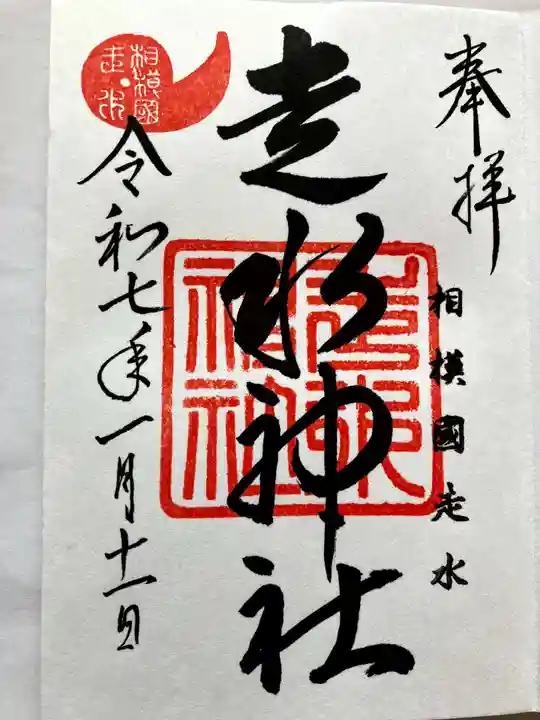 奉拝
相模國走水
走水神社
走水神社
令和七年一月十一日
相模國
走水